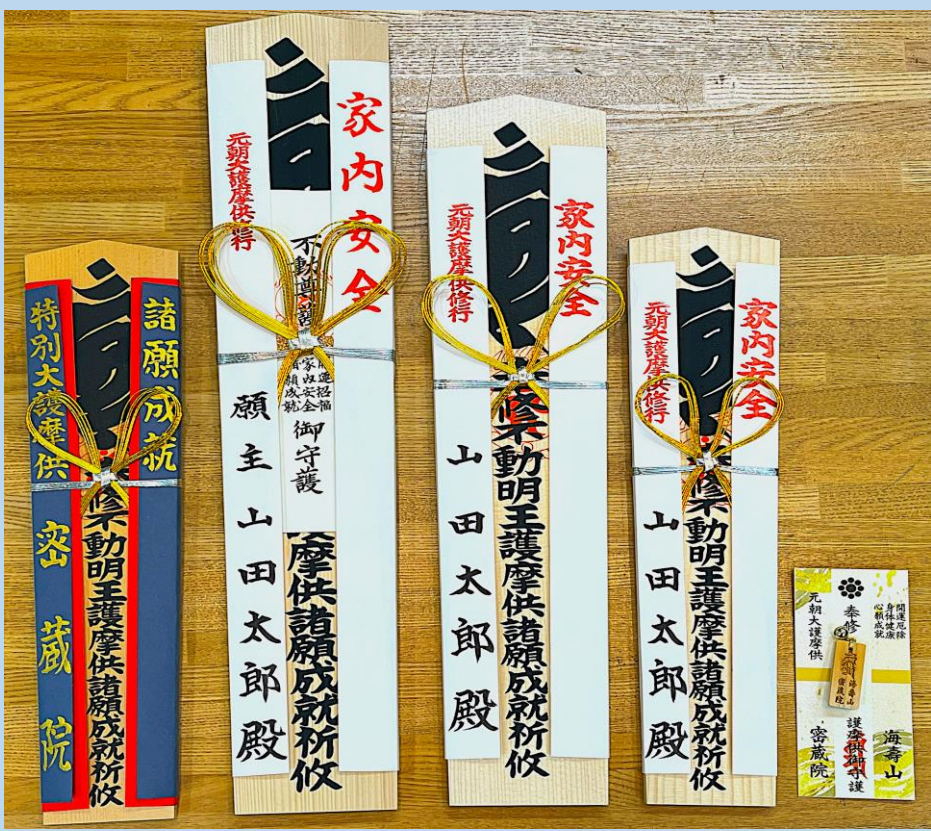 諸願成就
修不動明王護摩供諸願成就祈攸
特別大護摩供 密蔵院
家内安全
不動尊護
運招福
家内安全
願成就
御守護
摩供諸願成就祈攸
元朝大護摩供修行
願主山田太郎殿
家内安全
修不動明王護摩供諸願成就祈攸
元朝大護摩供修行
山田太郎殿
家内安全
修不動明王護摩供諸願成就祈攸
元朝大護摩供修行
山田太郎殿
開運厄除
身体健康
心願成就
海壽山
奉修
護摩供御守護
海壽山
密蔵院
元朝大護摩供
密蔵院